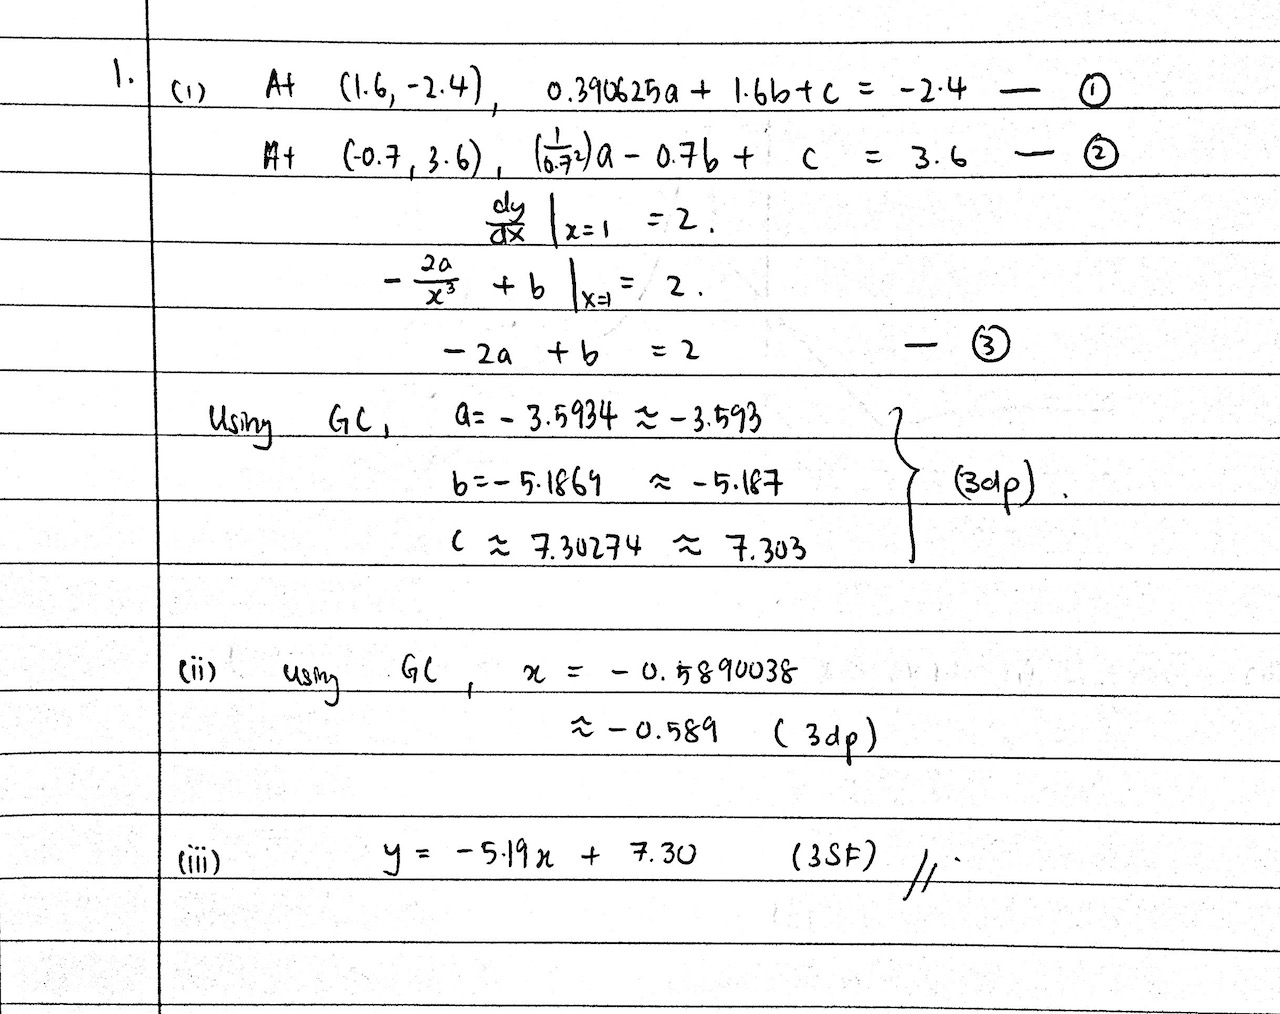 1. (i) At (1.6, -2.4), 0.390625a + 1.6b + c = -2.4 — ①
At (-0.7, 3.6), (1/0.7²)a - 0.7b + c = 3.6 — ②
dy/dx |x=1 = 2.
- 2a/x³ + b |x=1 = 2.
- 2a + b = 2 — ③
Using GC, a = - 3.5934 ≈ -3.593
b = - 5.1869 ≈ -5.187 } (3dp).
c ≈ 7.30274 ≈ 7.303
(ii) using GC, x = - 0.5890038
≈ - 0.589 (3dp)
(iii) y = -5.19x + 7.30 (3SF) //